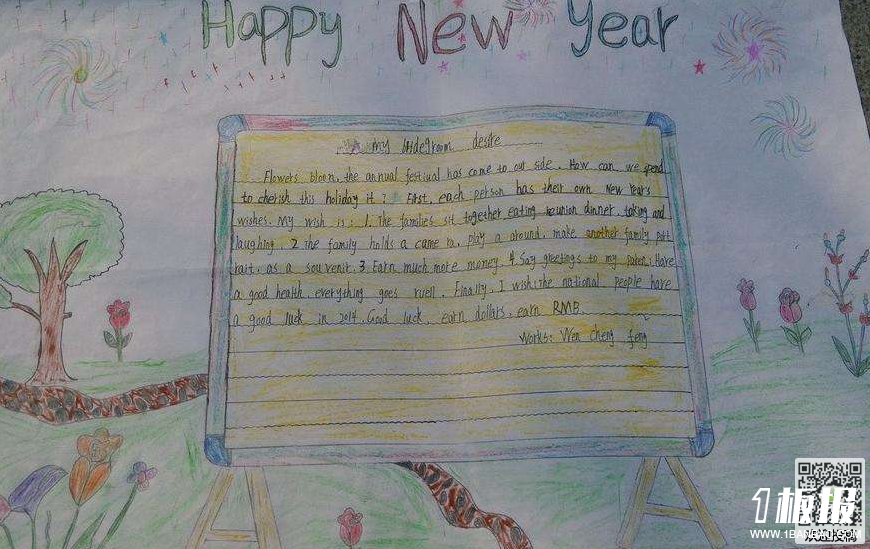 Happy New Year
my desire
Flowers bloon, the annual festival has come to our side. How can we spend
to cherish this holiday it? First, each person has their own New Years
wishes. My wish is: 1. The families sit together eating reunion dinner, taking and
laughing, 2 the family holds a came ra, play a around, make another family pot
rait, as a souvenir. 3 Earn much more money. 4. Say greetings to my paten. Have
a good health, everything goes ruell. Finally, I wish the national people have
a good luck in 2014. Good luck, earn dollars, earn RMB.
Works: Wen cheng feng
1板报
WWW.1BANBAO.COM
欢迎投稿